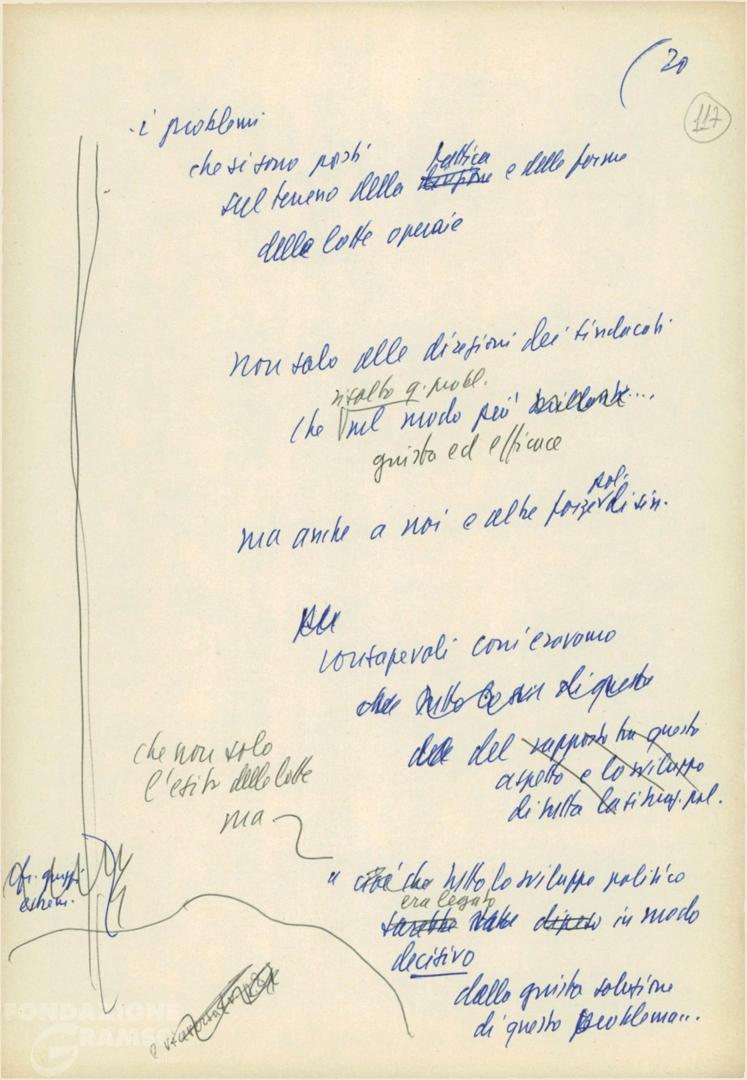 20
117
i problemi
che si sono posti
tattica
sul terreno della e delle forme
delle lotte operaie
non solo alle direzioni dei sindacati
risolto q. probl.
che nel modo più brillante...
giusto ed efficace
poli.
ma anche a noi e altre forze di sin.
consapevoli com'eravamo
che tutto di questo
del rapporto tra questo
aspetto e lo sviluppo
di tutta la situaz. pol.
che non solo
l'esito delle lotte
ma
cfr. gruppi
estrem.
" cioè che tutto lo sviluppo politico
era legato
sarebbe dipeso in modo
decisivo
dalla giusta soluzione
di questo problema..
FONDAZIONE
GRAMSCI